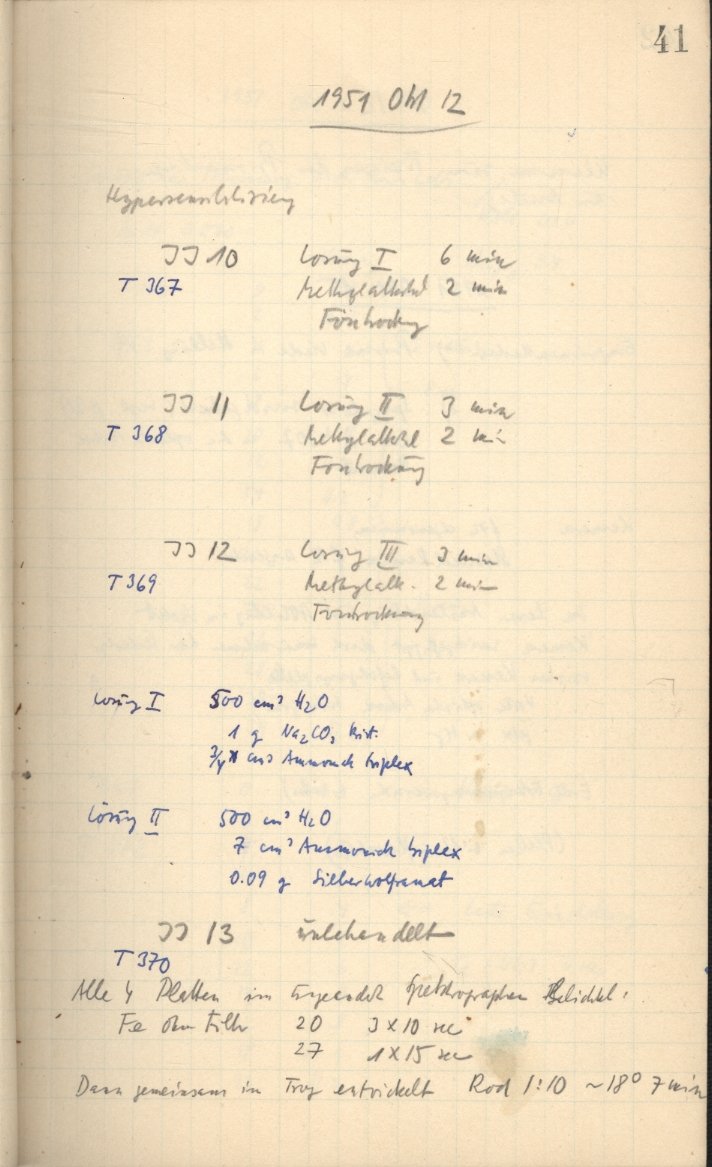 41
1951 Okt 12
Hypersensibilisierg
JJ 10 Lösung I 6 min
T 367 Methylalkohol 2 min
Föntrockng
JJ 11 Lösung II 3 min
T 368 Methylalkohol 2 min
Föntrockung
JJ 12 Lösung III 3 min
T 369 Methylalk. 2 min
Föntrocknung
Lösung I 500 cm³ H₂O
1 g Na₂CO₃ krist.
cm³ Ammoniak triplex
Lösung II 500 cm³ H₂O
7 cm³ Ammoniak triplex
0.09 g Silberwolframat
JJ 13 unbehandelt
T 370
Alle 4 Platten im Spektrographen Belichtet:
Fe ohne Filter 20 3 x 10 sec
27 1 x 15 sec
Dann gemeinsam in Trog entwickelt Rod 1:10 ~18° 7 min